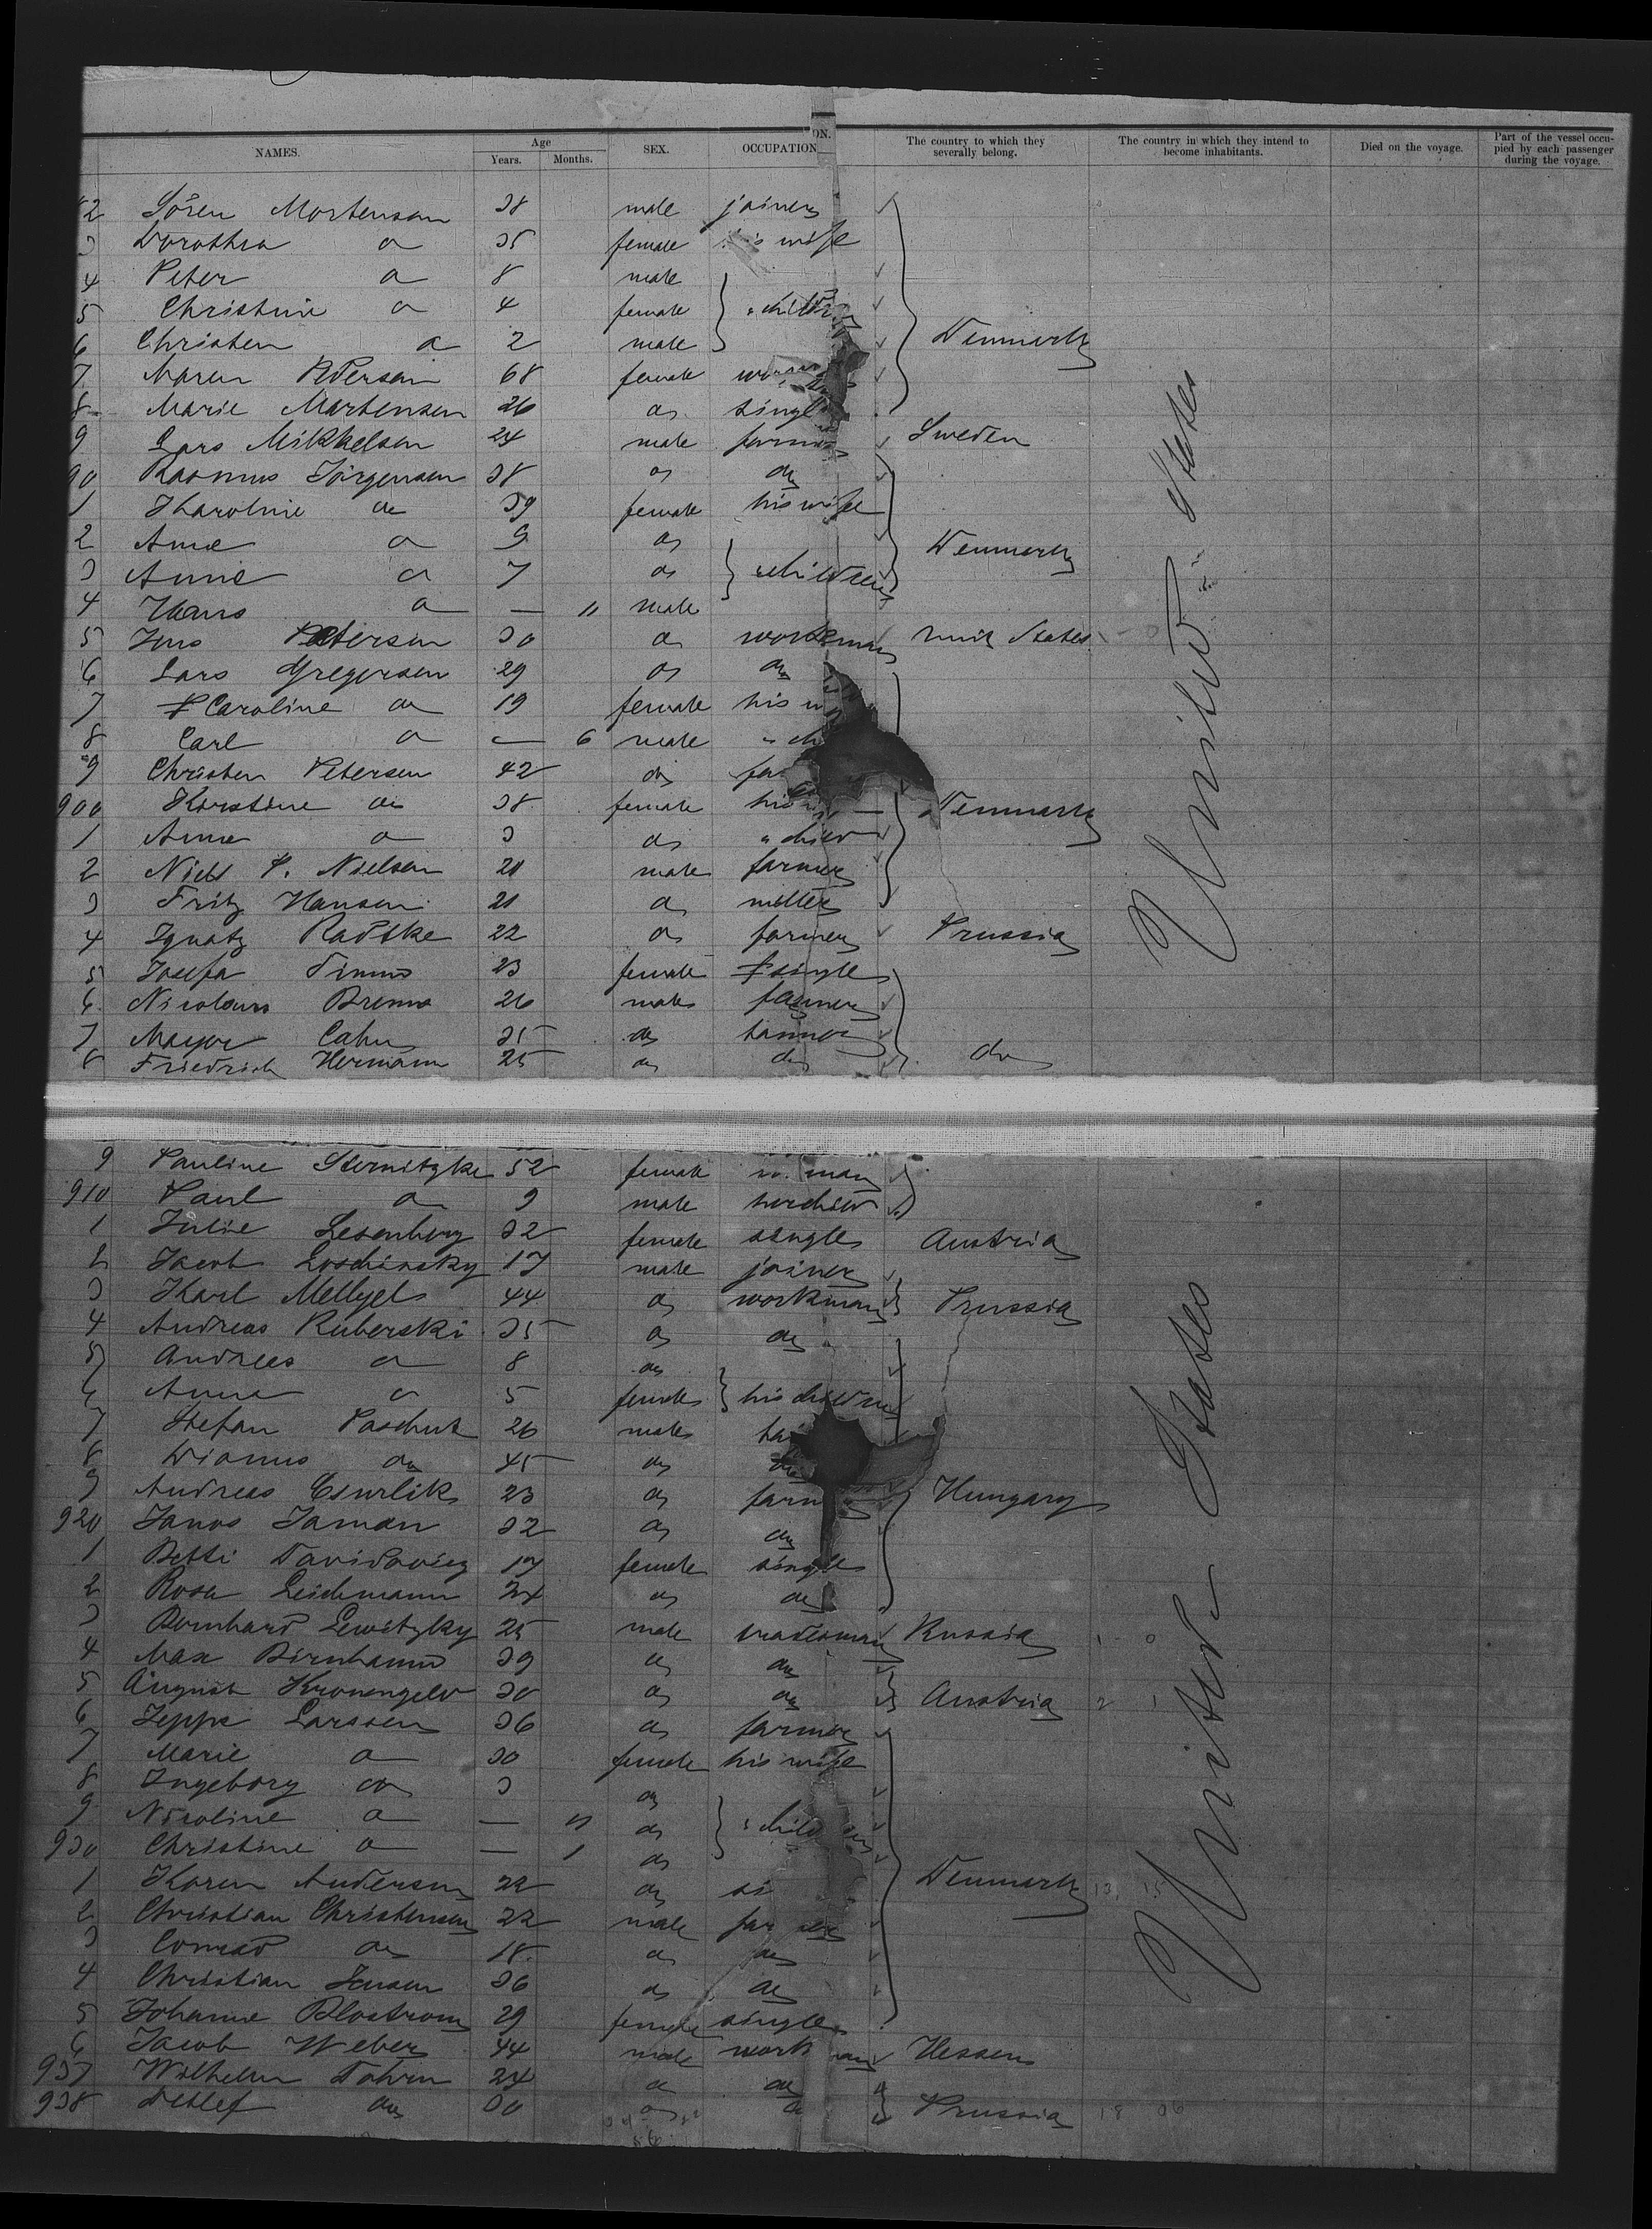 NAMES. Age Years. Months. SEX. OCCUPATION ON. The country to which they severally belong. The country in which they intend to become inhabitants. Died on the voyage. Part of the vessel occupied by each passenger during the voyage.
2 Sören Mortensen 38 male joiner
3 Dorothea a 35 female his wife
4 Peter a 8 male
5 Christine a 4 female " childr
6 Christen a 2 male Denmark
7 Maren Pedersen 68 female
8 Marie Martensen 26 do singl
9 Lars Mikkelsen 24 male farmer Sweden
90 Rasmus Jörgensen 38 do do
1 Karoline do 39 female his wife
2 Ane a 9 do Denmark
3 Anne a 7 do children
4 Hans a — 11 male
5 Jens Petersen 30 do workman Unit States
6 Lars Gregersen 29 do do
7 Caroline do 19 female his w
8 Carl a — 6 male " ch
9 Christen Petersen 42 do fa
900 Kirstine do 38 female his Denmark
1 Anne a 3 do " child
2 Niels P. Nielsen 21 male farmer
3 Fritz Hansen 21 do miller
4 Ignatz Radtke 22 do farmer Prussia
5 Josefa 23 female single
6 Nicolaus 26 male farmer
7 Mayer Cahn 35 do tanner
8 Friedrich Hermann 25 do do do
9 Pauline Sternitzke 52 female w. man
910 Paul a 9 male her child
1 Julie Lesenberg 32 female single Austria
2 Jacob Loschinsky 17 male joiner
3 Karl 44 do workman Prussia
4 Andreas Ruberski 35 do do
5 Andreas a 8 do
6 Anna a 5 female his children
7 Stefan Paschuk 26 male
8 do 45 do do
9 Andreas Csurlik 23 do farm Hungary
920 Janos Jaman 32 do do
1 Betti Davidovicz 17 female single
2 Rosa Leichmann 24 do do
3 Bernhard Lewitzky 25 male tradesman Russia
4 Max Birnbaum 39 do do
5 August Kronengeld 30 do do Austria
6 Jeppe Larssen 36 do farmer
7 Marie a 30 female his wife
8 Ingeborg do 3 do
9 Nicoline a — 11 do " child en
930 Christine a — 1 do
1 Karen Andersen 22 do si Denmark
2 Christian Christensen 22 male far mer
3 Conrad do 18 do do
4 Christian Jensen 36 do do
5 Johanne Blostrom 29 female single
6 Jacob Weber 44 male work man Hessen
937 Wilhelm 24 do do
938 Detlef do 30 do do Prussia
United States
United States